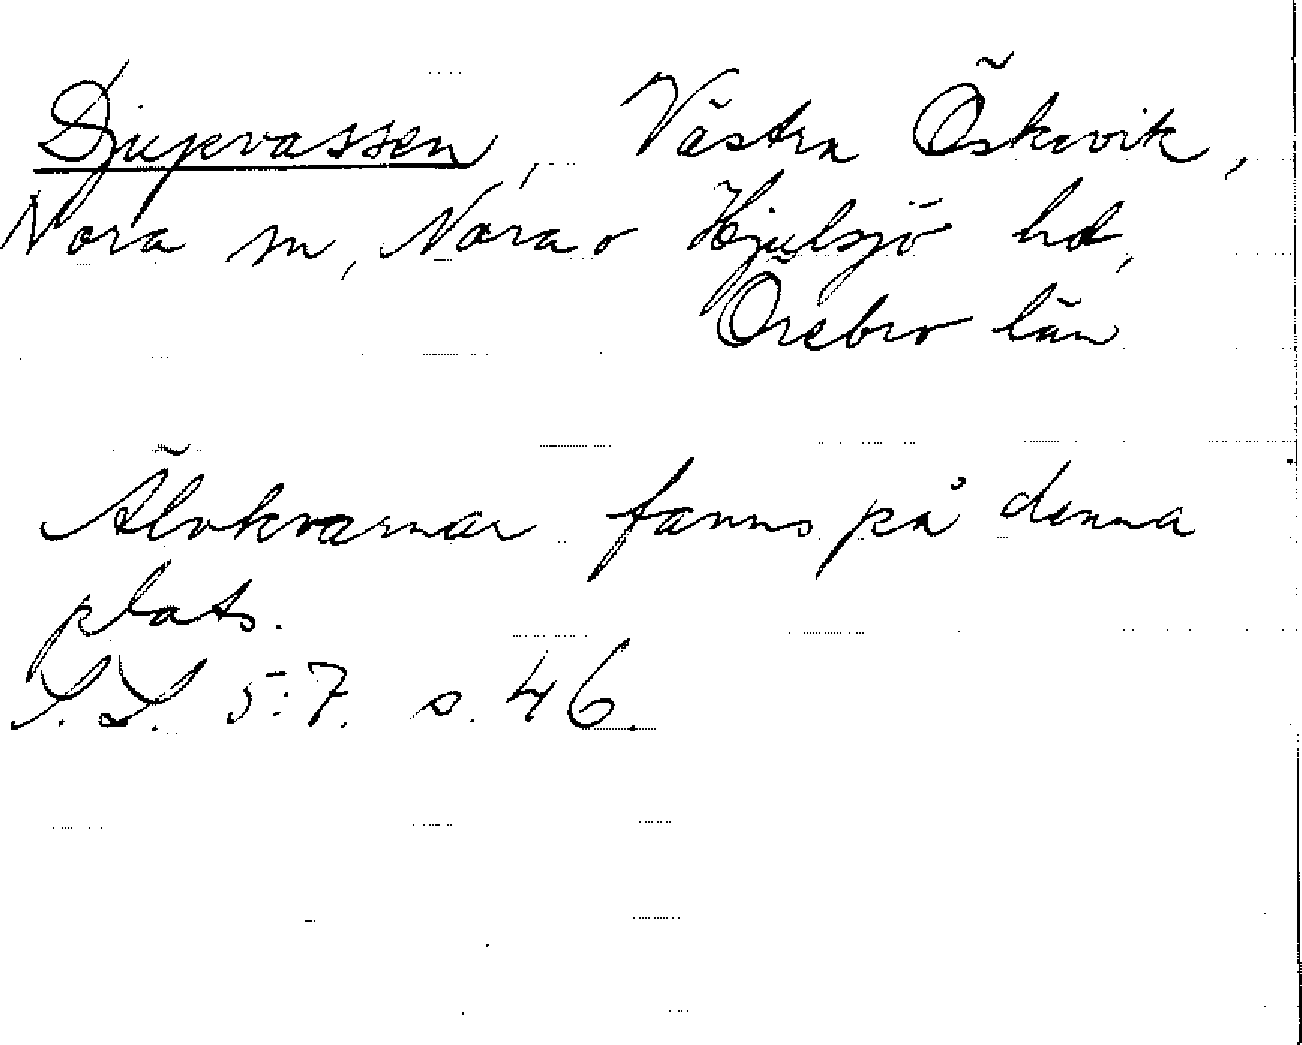 Djupvassen, Västra Öskevik,
Nora sn, Nora o Hjulsjö hd,
Örebro län
Älvkvarnar fanns på denna
plats.
S.L. 5:7. s. 46.